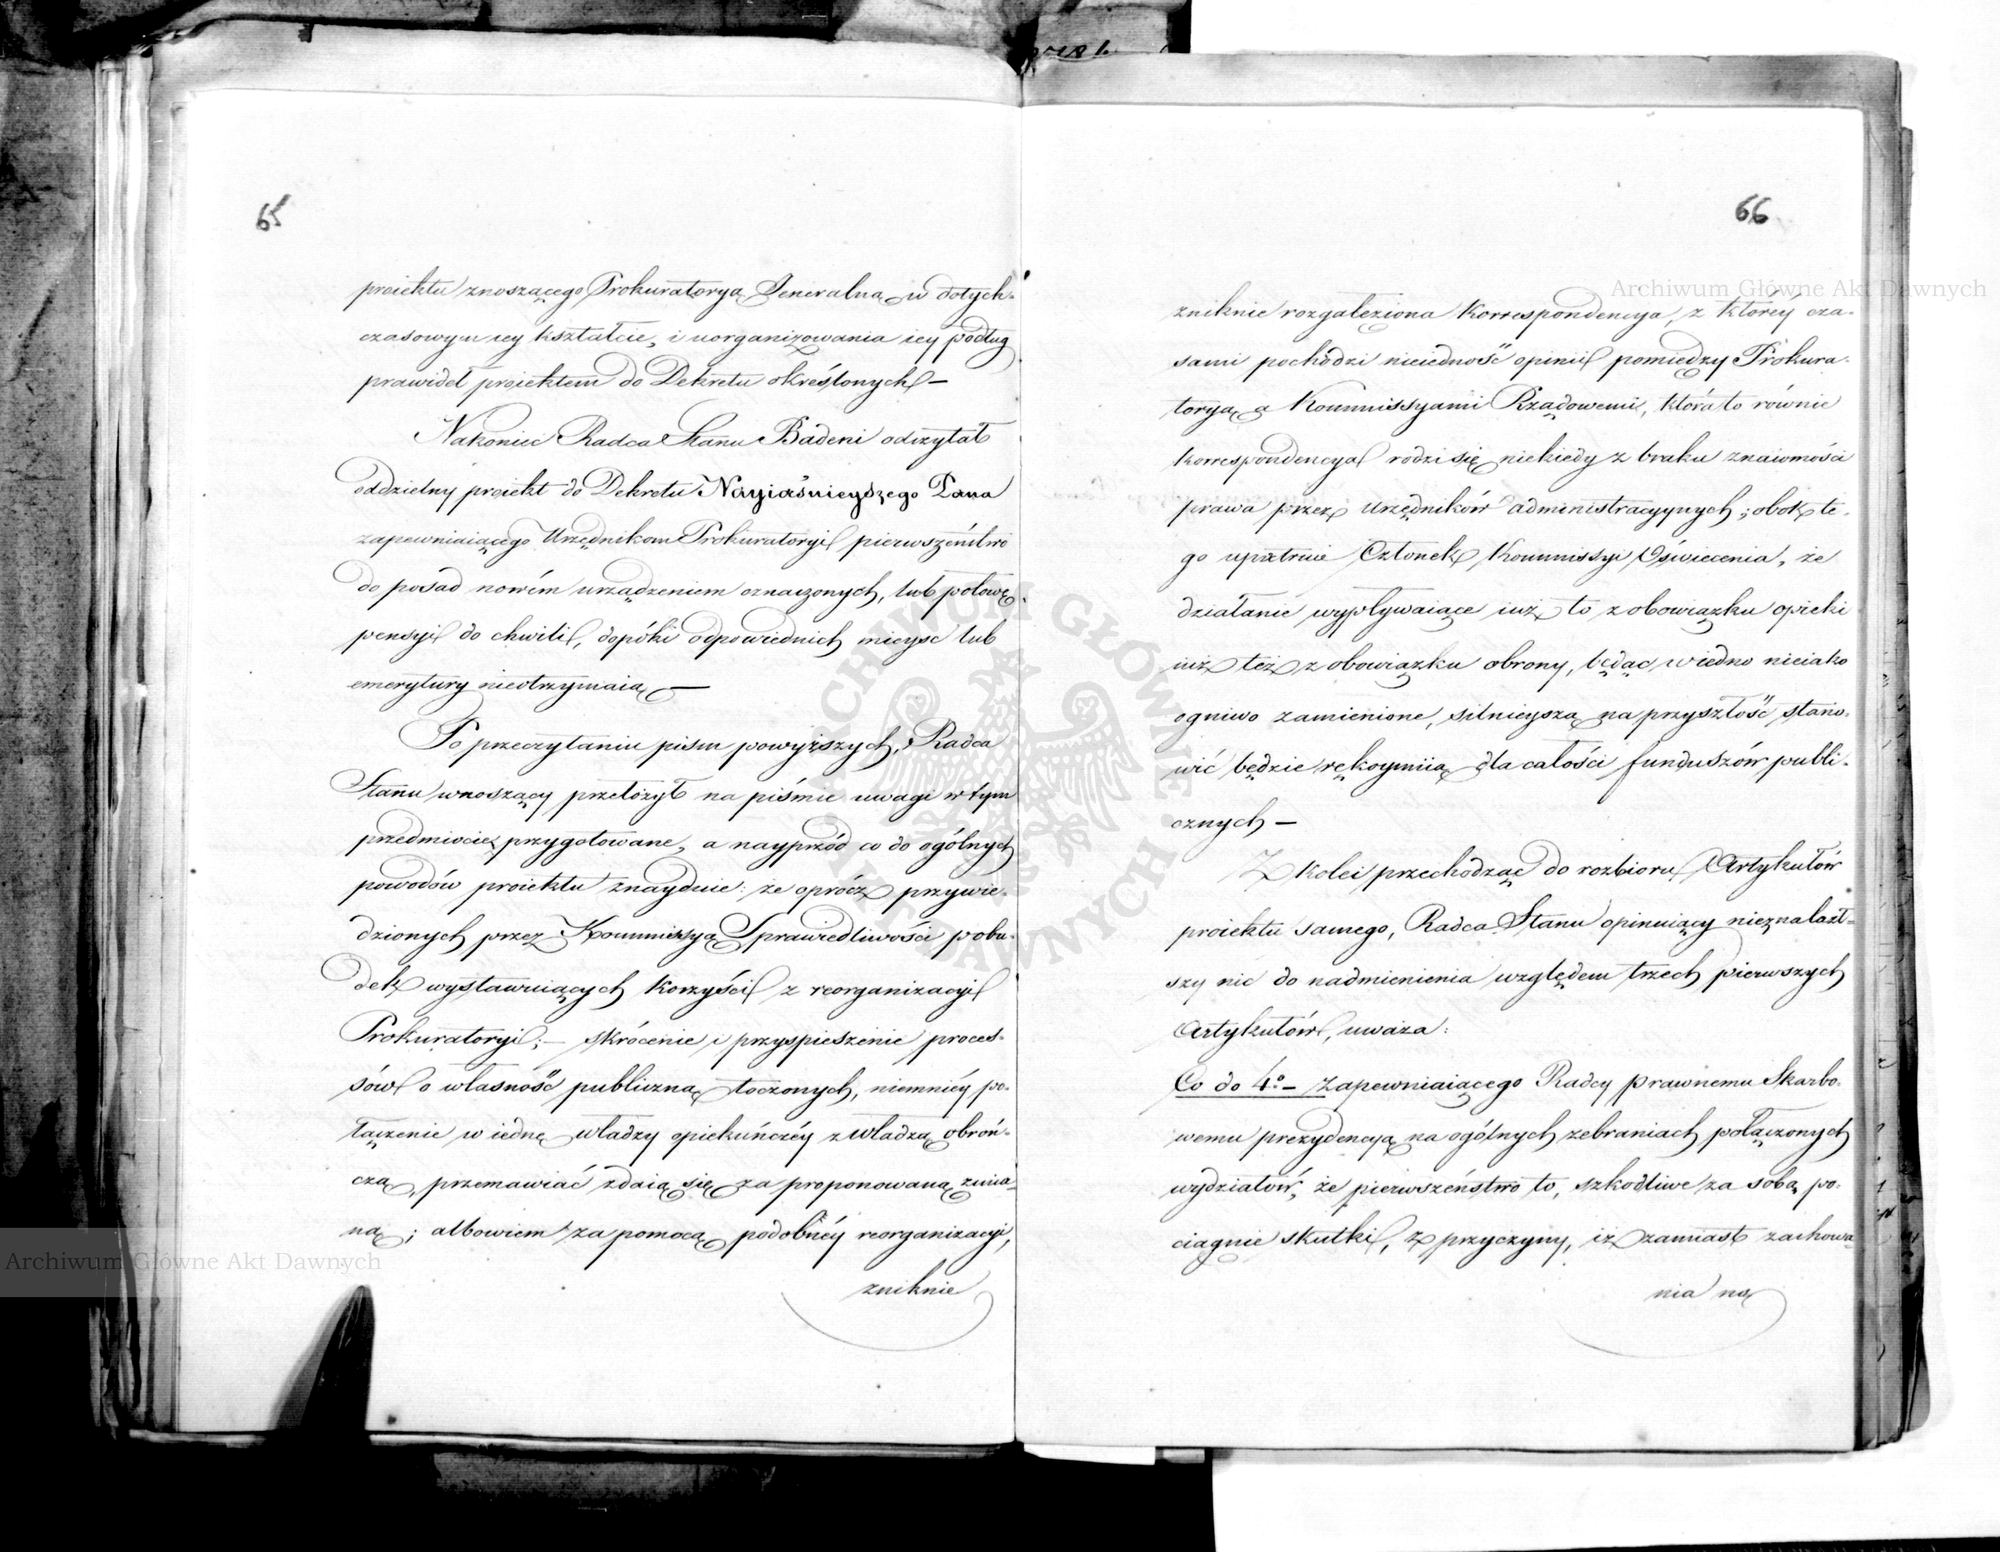 65
proiektu znoszącego Prokuratoryą Jeneralną w dotych-
czasowym iey kształcie, i uorganizowania iey podług
prawideł proiektem do Dekretu określonych —
Nakoniec Radca Stanu Badeni odczytał
oddzielny proiekt do Dekretu Nayiaśnieyszego Pana
zapewniaiącego Urzędnikom Prokuratoryi pierwszeństwo
do posad nowém urządzeniem oznaczonych, lub połowę
pensyi do chwili, dopóki odpowiednich mieysc lub
emerytury nieotrzymaią —
Po przeczytaniu pism powyższych, Radca
Stanu wnoszący przełożył na piśmie uwagi w tym
przedmiocie przygotowane, a nayprzód co do ogólnych
powodów proiektu znayduie: że oprócz przywie-
dzionych przez Kommissyą Sprawiedliwości pobu-
dek wystawuiących korzyści z reorganizacyi
Prokuratoryi; — skrócenie i przyspieszenie proces-
sów o własność publiczną toczonych, niemniéy po-
łączenie w iednę władzy opiekuńczéy z władzą obroń-
czą, przemawiać zdaią się za proponowaną zmia-
ną; albowiem za pomocą podobnéy reorganizacyi,
zniknie
66
zniknie rozgałęziona korrespondencya, z któréy cza-
sami pochodzi niejedność opinii pomiędzy Prokura-
toryą a Kommissyami Rządowemi, która to równie
korrespondencya rodzi się niekiedy z braku znaiomości
prawa przez urzędników administracyynych; obok te-
go upatruie Członek Kommissyi Oświecenia, że
działanie wypływaiące iuż to z obowiązku opieki
iuż też z obowiązku obrony, będąc w iedno nieiako
ogniwo zamienione, silnieyszą na przyszłość stano-
wić będzie rękoymiią dla całości funduszów publi-
cznych —
Z kolei przechodząc do rozbioru Artykułów
proiektu samego, Radca Stanu opiniuiący nieznalazł-
szy nic do nadmienienia względem trzech pierwszych
Artykułów, uważa:
Co do 4º — zapewniaiącego Radcy prawnemu Skarbo-
wemu prezydencyą na ogólnych zebraniach połączonych
wydziałów, że pierwszeństwo to, szkodliwe za sobą po-
ciągnie skutki, z przyczyny, iż zamiast zachowa-
nia na
Archiwum Główne Akt Dawnych
Archiwum Główne Akt Dawnych
ARCHIWUM GŁÓWNE AKT DAWNYCH